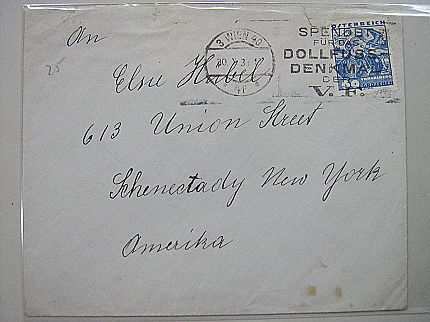 An
Elsie Hubel
613 Union Street
Schenectady New York
Amerika
25
3 WIEN 40
SPENDET
FÜR DAS
DOLLFUSS-
DENKMAL
DER
V. F.
ÖSTERREICH